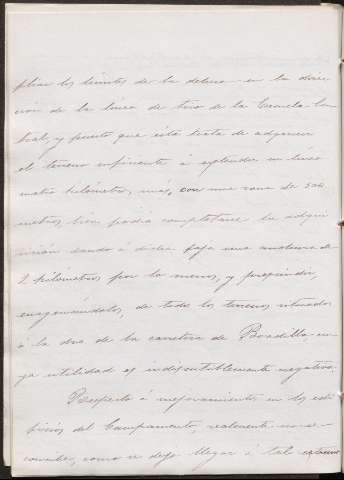 pliar los limites de la dehesa en la direc-
ción de la linea de tiro de la Escuela Cen-
tral, y puesto que ésta trata de adquirir
el terreno suficiente á esplender su linea
cuatro kilómetros más, con una zona de 500
metros, bien podia completarse la adqui-
sición dando á dicha faja una anchura de
2 kilómetros por lo menos, y prescindir,
enagenándolos, de todos los terrenos situados
á la dra de la carretera de Boadilla cu-
ya utilidad es indiscutiblemente negativa.
Respecto á mejoramientos en los edi-
ficios del Campamento, realmente no se
concibe, como se dejó llegar á tal extremo